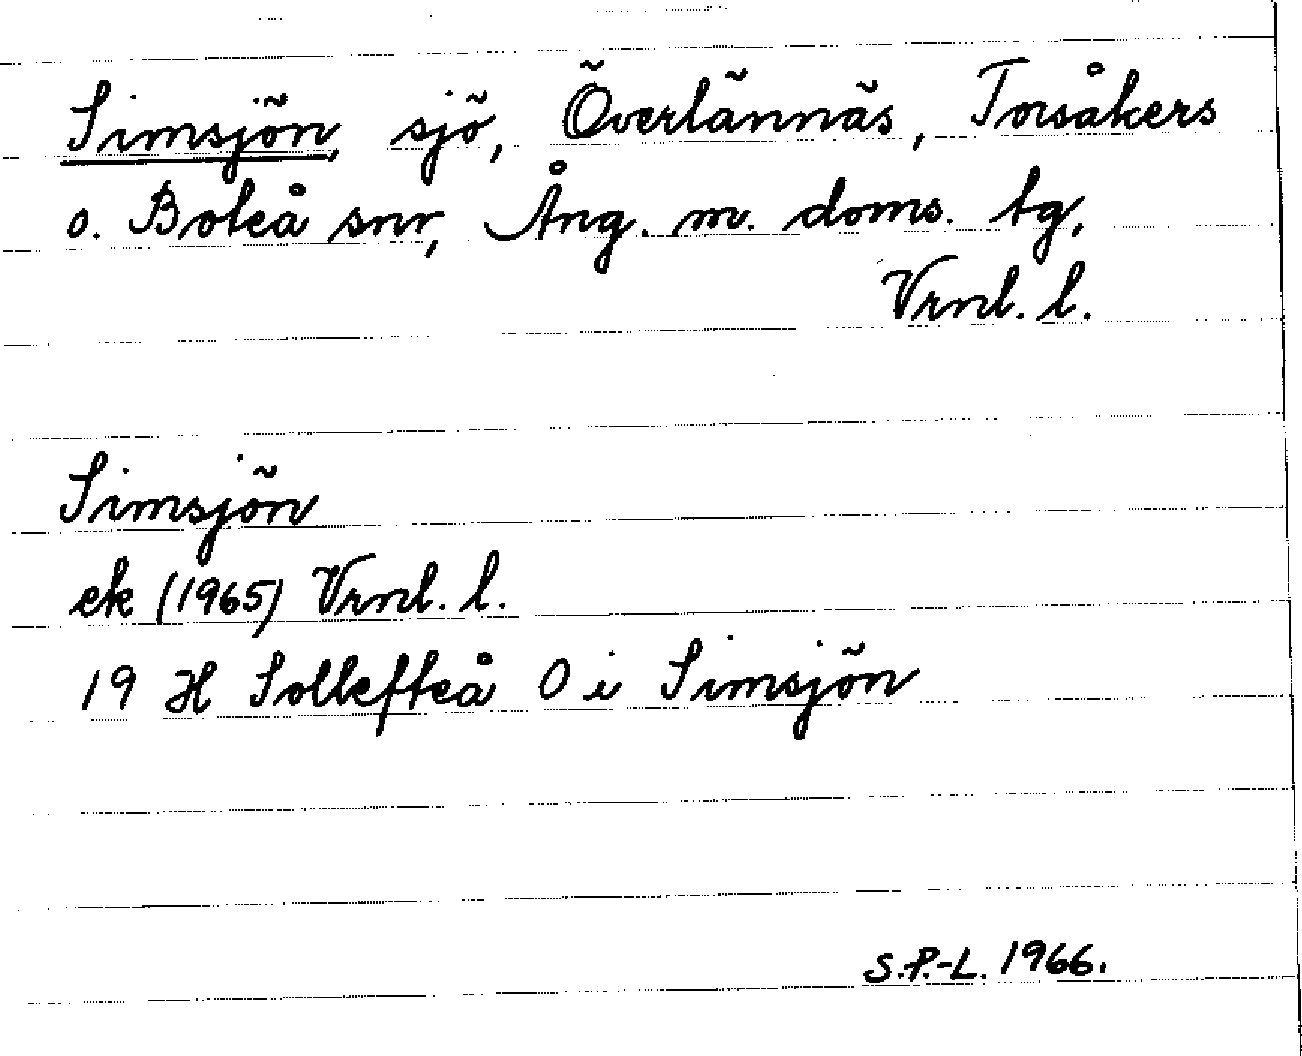 Simsjön, sjö, Överlännäs, Torsåkers
o. Boteå snr, Ång. m. doms. tg,
Vrnl. l.
Simsjön
ek (1965) Vrnl. l.
19 H Sollefteå O i Simsjön
S.P.-L. 1966.